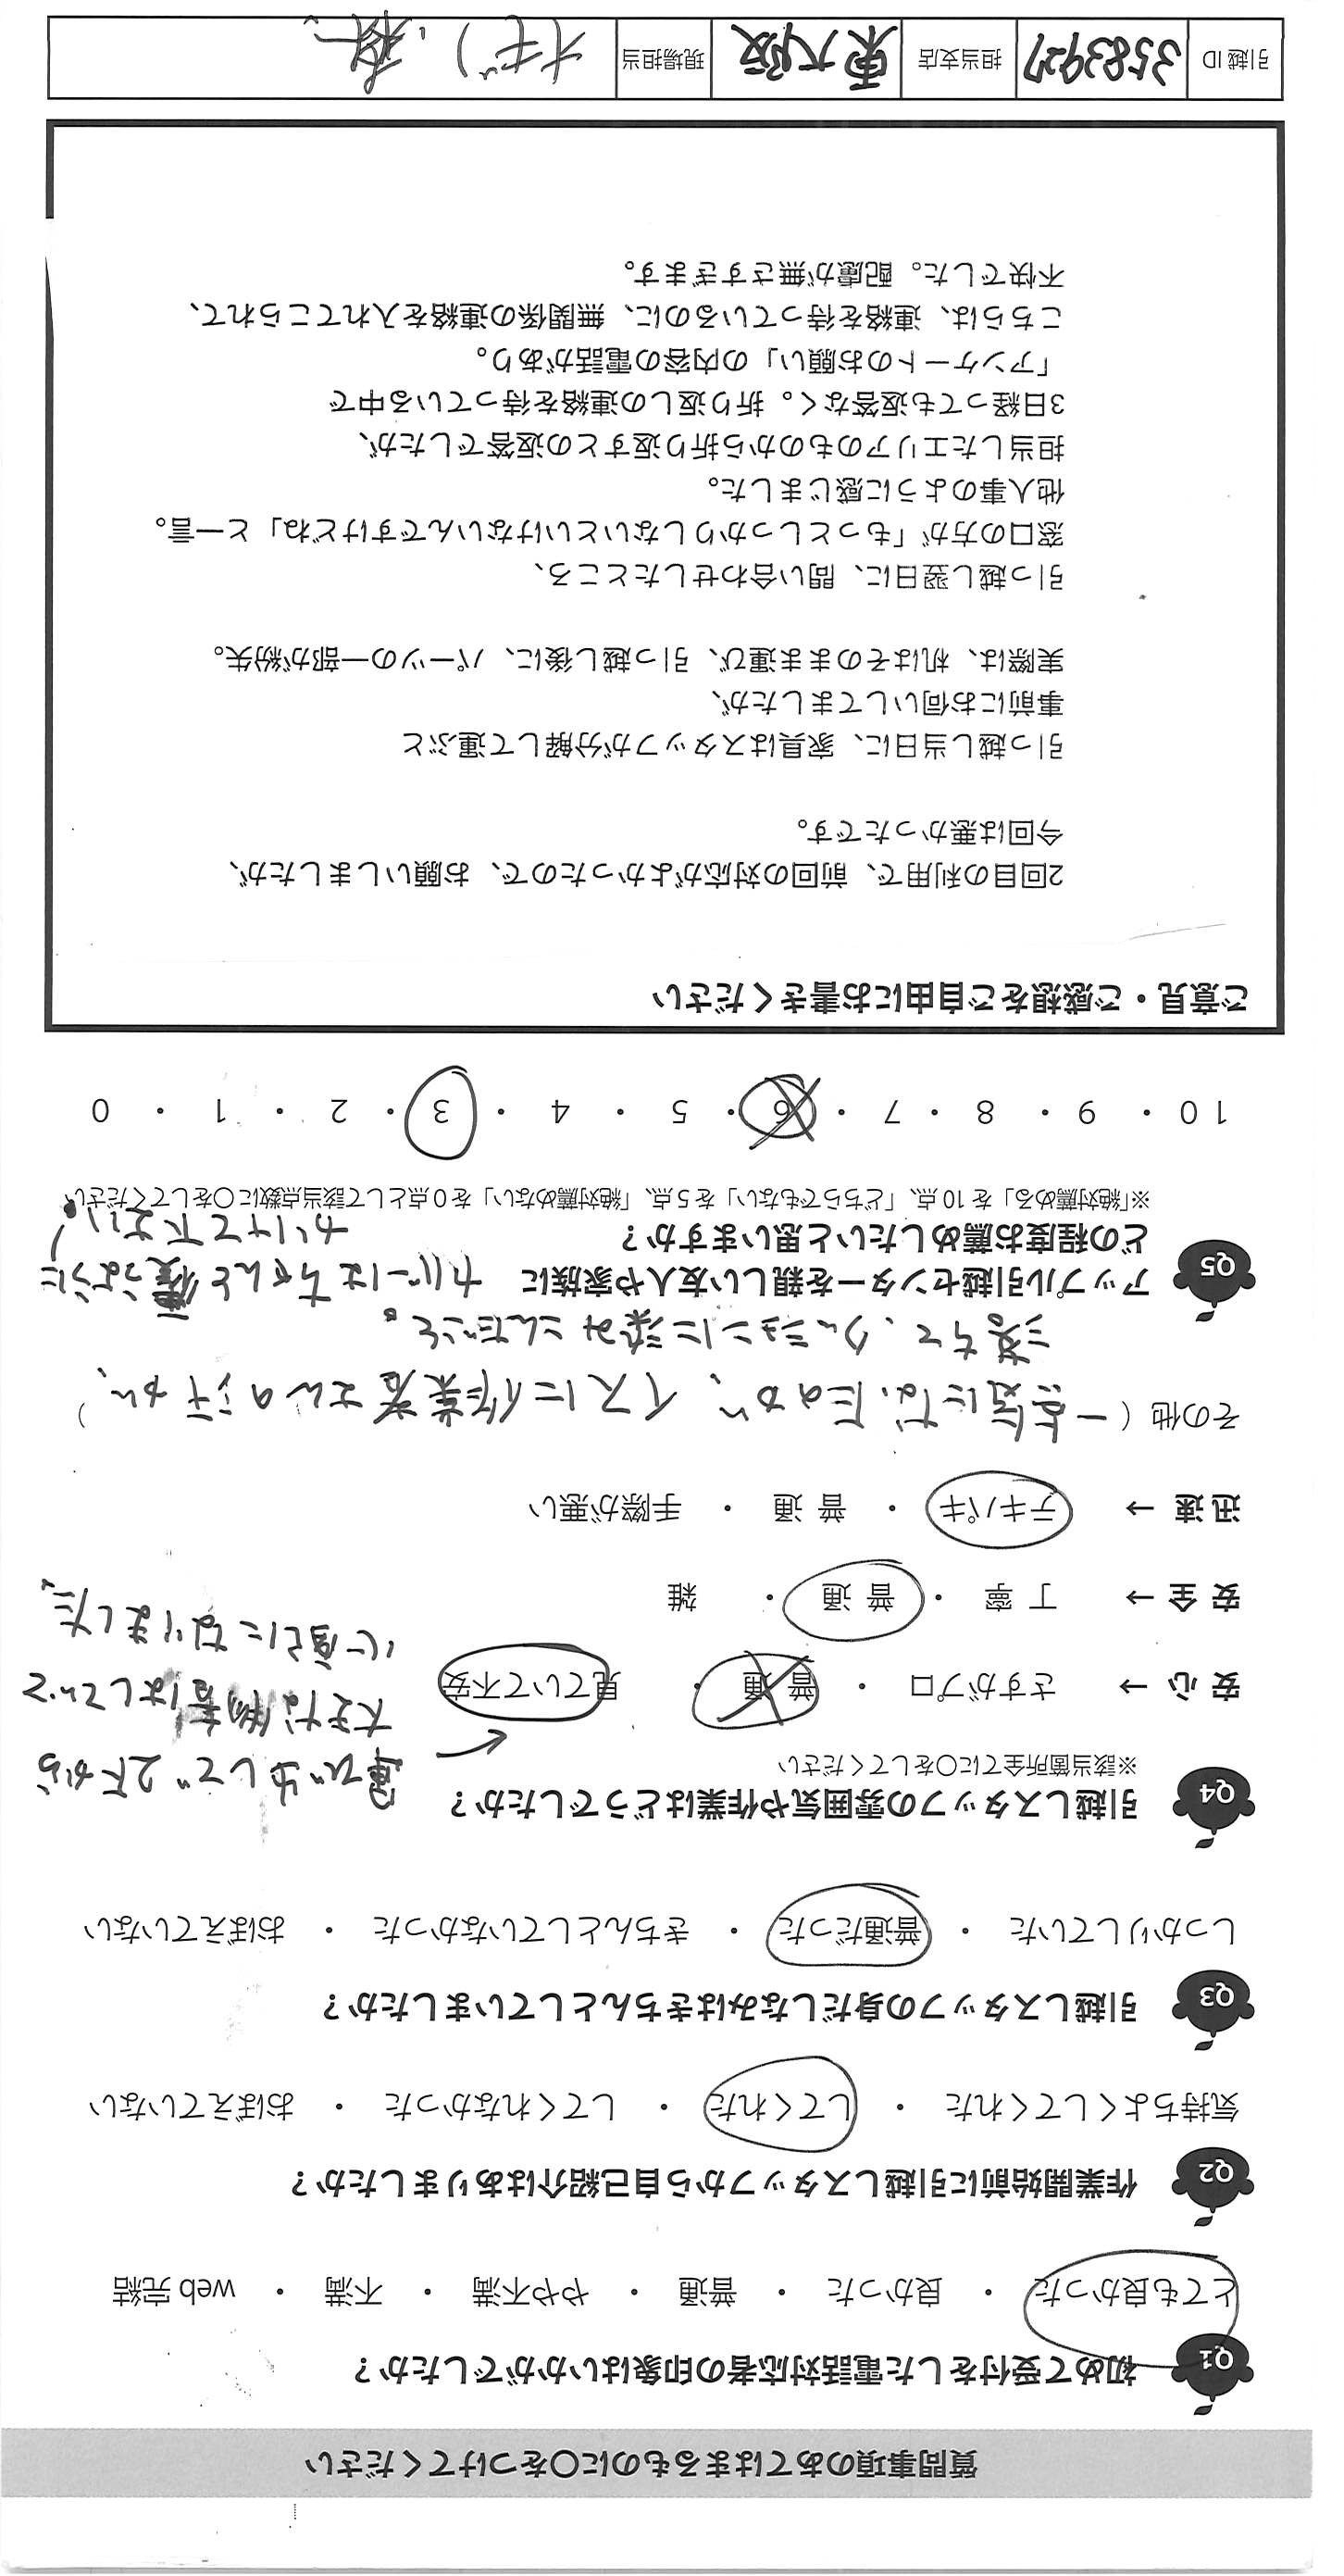 質問事項のあてはまるものに〇をつけてください
Q1 初めて受付をした電話対応者の印象はいかがでしたか？
とても良かった ・ 良かった ・ 普通 ・ やや不満 ・ 不満 ・ web 完結
Q2 作業開始前に引越しスタッフから自己紹介はありましたか？
気持ちよくしてくれた ・ してくれた ・ してくれなかった ・ おぼえていない
Q3 引越しスタッフの身だしなみはきちんとしていましたか？
しっかりしていた ・ 普通だった ・ きちんとしていなかった ・ おぼえていない
Q4 引越しスタッフの雰囲気や作業はどうでしたか？
※該当箇所全てに〇をしてください
運び出しで2Fから
大きな物音はしていて
心配になりました。
安 心 → さすがプロ ・ 普 通 ・ 見ていて不安
安 全 → 丁 寧 ・ 普 通 ・ 雑
迅 速 → テキパキ ・ 普 通 ・ 手際が悪い
その他（一点気になったのが、イスに作業者さんの汗が、）
落ちて、クッションに染みこんだこと。
カバーはちゃんと覆うように
かけて下さい。
Q5 アップル引越センターを親しい友人や家族に
どの程度お薦めしたいと思いますか？
※「絶対薦める」を 10 点、「どちらでもない」を 5 点、「絶対薦めない」を 0 点として該当点数に〇をしてください。
10 ・ 9 ・ 8 ・ 7 ・ 6 ・ 5 ・ 4 ・ 3 ・ 2 ・ 1 ・ 0
ご意見・ご感想をご自由にお書きください
2回目の利用で、前回の対応がよかったので、お願いしましたが、
今回は悪かったです。
引っ越し当日に、家具はスタッフが分解して運ぶと
事前にお伺いしてましたが、
実際は、机はそのまま運び、引っ越し後に、パーツの一部が紛失。
引っ越し翌日に、問い合わせしたところ、
窓口の方が「もっとしっかりしないといけないんですけどね」と一言。
他人事のように感じました。
担当したエリアのものから折り返すとの返答でしたが、
3日経っても返答なく。折り返しの連絡を待っている中で
「アンケートのお願い」の内容の電話があり。
こちらは、連絡を待っているのに、無関係の連絡を入れてこられて、
不快でした。配慮が無さすぎます。
引越 ID 3583927 担当支店 東大阪 現場担当